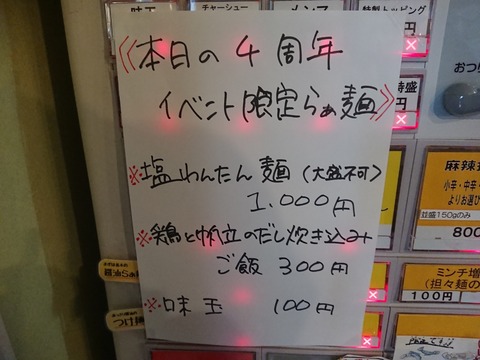 味玉
チャーシュー
メンマ
特製トッピング
《本日の4周年
イベント限定らぁ麺》
※塩わんたん麺(大盛不可)
1,000円
※鶏と帆立のだし炊き込み
ご飯 300円
※味玉 100円
特盛
円
おつり
麻辣
小辛・中辛・
よりお選び
並盛150gのみ
800
ミンチ増
(担々麺の
100円
醤油らぁ
つけ麺